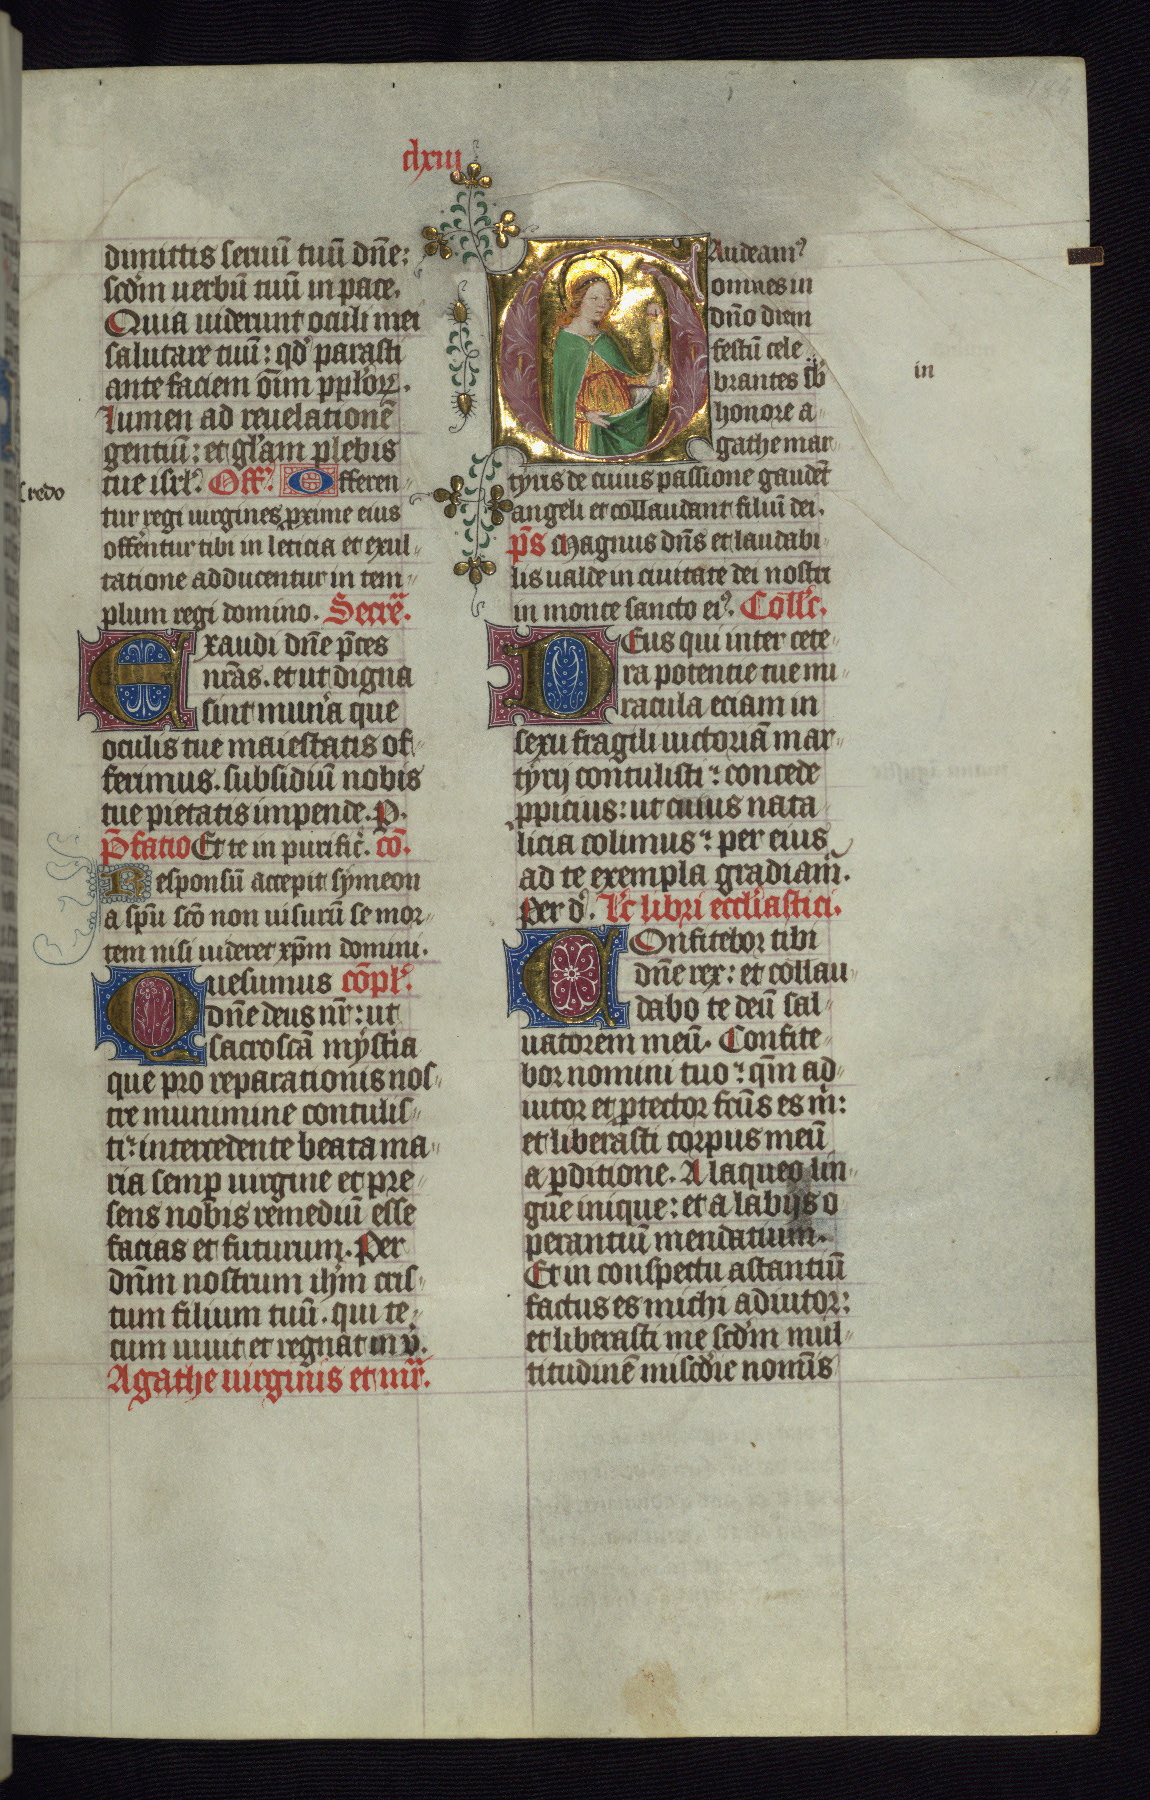 clxiii
dimittis seruū tuū dn̄e:
scd̄m uerbū tuū in pace.
Quia uiderunt oculi mei
salutare tuū: qd' parasti
ante faciem oīm pp̄lorꝝ.
Lumen ad reuelationē
gentiū: et gl'am plebis
tue isrl'. Off'. Offeren
credo
tur regi uirgines ꝓxime eius
offērentur tibi in leticia et exul
tatione adducentur in tem
plum regi domino. Secreᷓ.
Exaudi dn̄e p̄ces
nr̄as. et ut digna
sint mun'a que
oculis tue maiestatis of
ferimus. subsidiū nobis
tue pietatis impende. P.
P̄fatio Et te in purific̄. cō.
Responsū accepit symeon
a sp̄u scō non uisurū se mor
tem nisi uideret xp̄m domini.
Quesumus cōpl'.
dn̄e deus nr̄: ut
sacroscā myst'ia
que pro reparationis nos
tre munimine contulis
ti: intercedente beata ma
ria semꝑ uirgine et pre
sens nobis remediū esse
facias et futurum. Per
dn̄m nostrum ih̄m cris
tum filium tuū. qui te
cum uiuit et regnat in v̄.
Agathe uirginis et mr̄.
Gaudeam'
omnes in
dn̄o diem
festū cele
brantes sb̄
in
honore a
gathe mar
tyris de cuius passione gaudēt
angeli et collaudant filiū dei.
p̄s Magnus dn̄s et laudabi
lis ualde in ciuitate dei nostri
in monte sancto ei'. Coll'c.
Deus qui inter cete
ra potentie tue mi
racula eciam in
sexu fragili uictoriā mar
tyrij contulisti: concede
ꝓpicius: ut cuius nata
licia colimus: per eius
ad te exempla gradiam̄.
Per d'. Lc̄ libri eccl'iastici.
Confitebor tibi
dn̄e rex: et collau
dabo te deū sal
uatorem meū. Confite
bor nomini tuo: qm̄ ad
iutor et ꝓtector fc̄us es m̄:
et liberasti corpus meū
a ꝑditione. A laqueo lin
gue inique: et a labijs o
perantiū mendatium.
Et in conspectu astantiū
factus es michi adiutor:
et liberasti me scd̄m mul
titudinē misc̄die nomīs